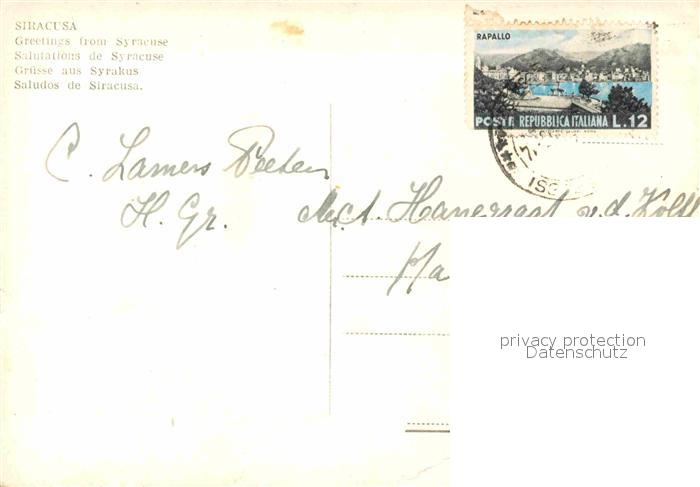 SIRACUSA
Greetings from Syracuse
Salutations de Syracuse
Grüsse aus Syrakus
Saludos de Siracusa.
RAPALLO
POSTE REPUBBLICA ITALIANA L.12
C. Lamers
H. Gr.
v. d.
privacy protection
Datenschutz